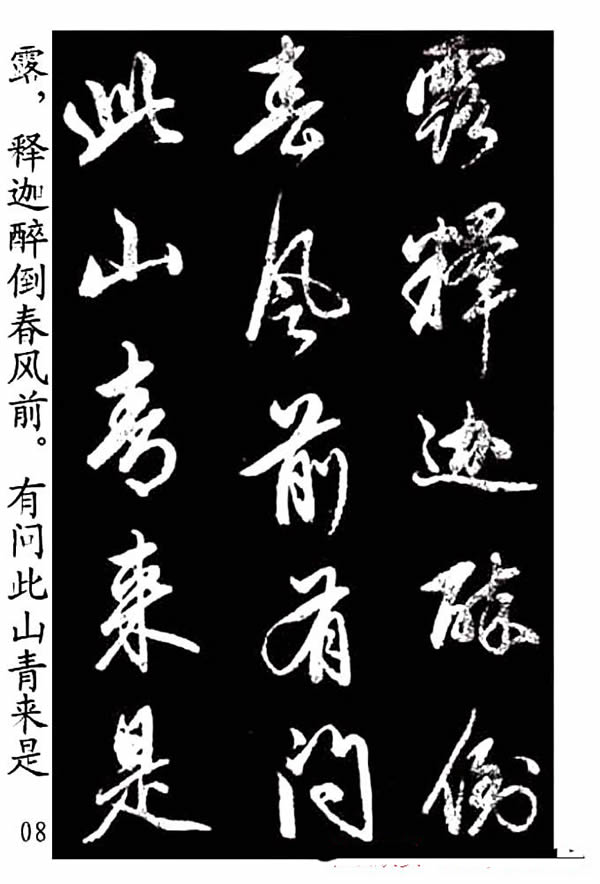 露释迦醉倒
春风前有问
此山青来是
露，释迦醉倒春风前。有问此山青来是
08